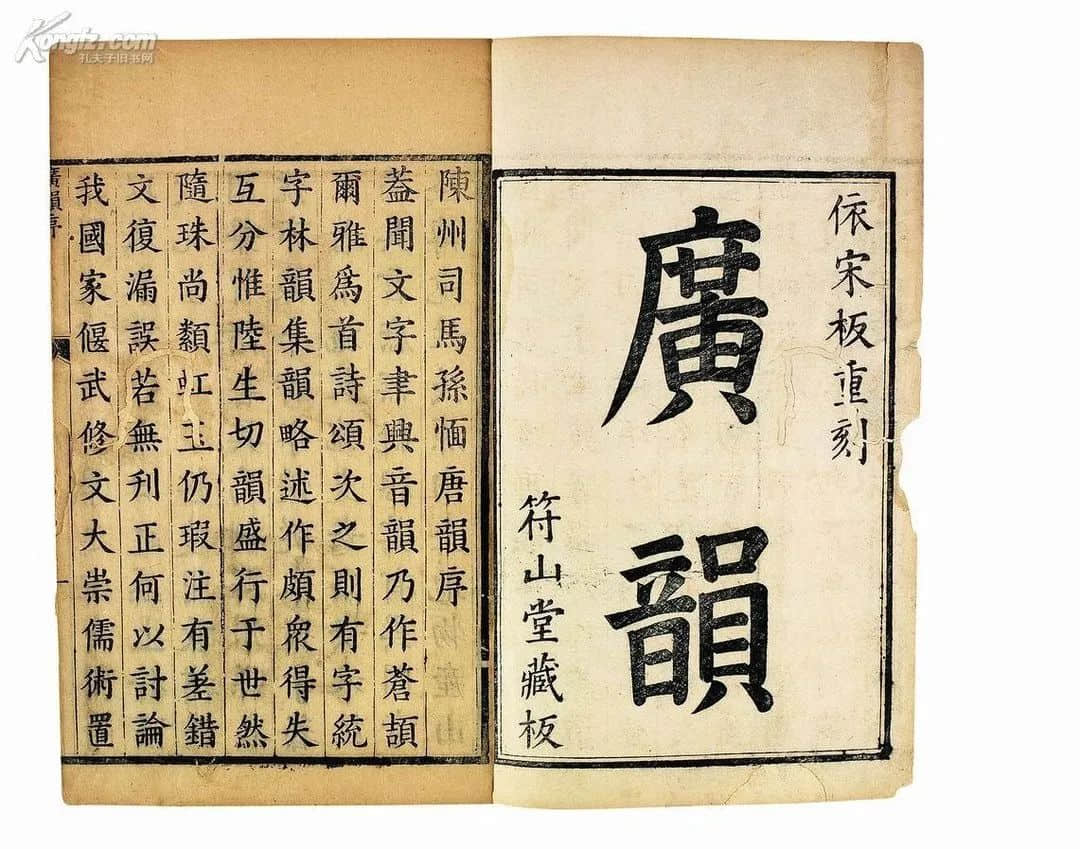 依宋板重刻
廣韻
符山堂藏板
陳州司馬孫愐唐韻序
葢聞文字聿興音韻乃作蒼頡
爾雅爲首詩頌次之則有字統
字林韻集韻略述作頗衆得失
互分惟陸生切韻盛行于世然
隨珠尚纇虹玉仍瑕注有差錯
文復漏誤若無刋正何以討論
我國家偃武修文大崇儒術置
廣韻序
Kongfz.com
孔夫子旧书网